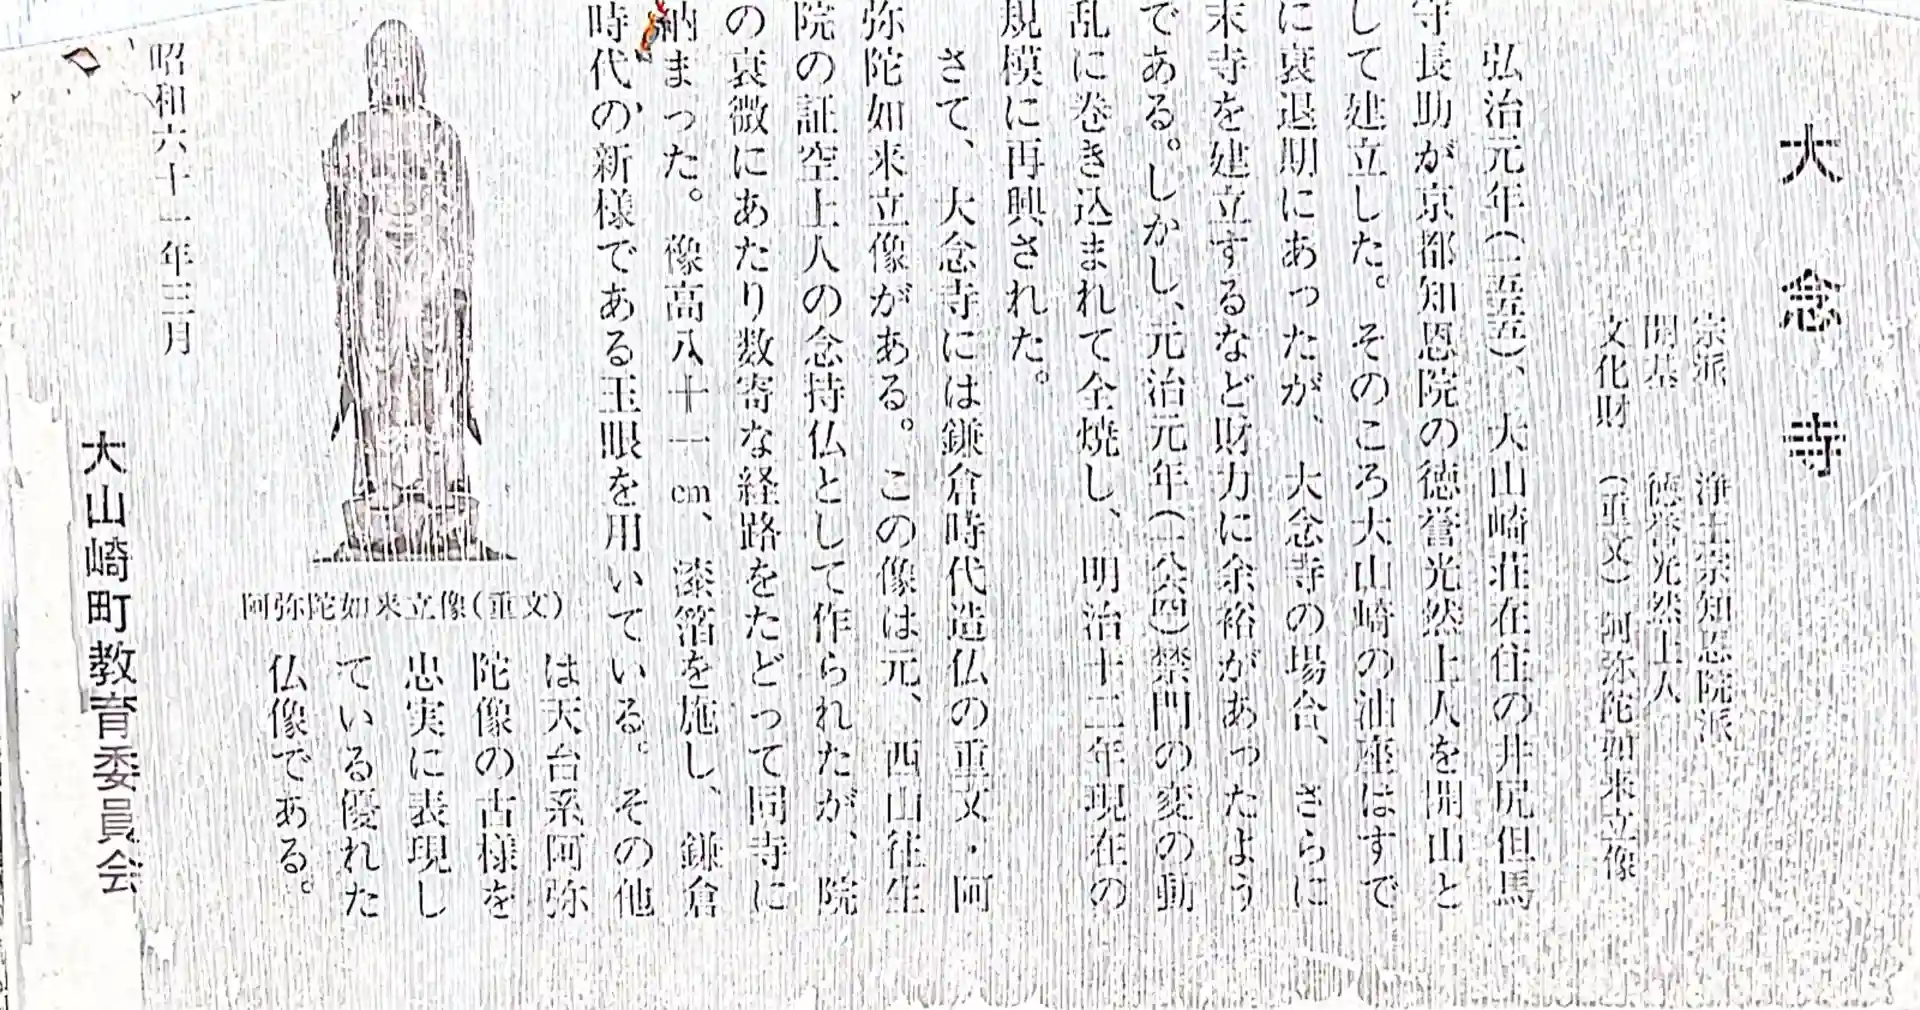 大念寺
宗派　浄土宗知恩院派
開基　徳誉光然上人
文化財　(重文)阿弥陀如来立像
弘治元年(一五五五)、大山崎荘在住の井尻但馬
守長助が京都知恩院の徳誉光然上人を開山と
して建立した。そのころ大山崎の油座はすで
に衰退期にあったが、大念寺の場合、さらに
末寺を建立するなど財力に余裕があったよう
である。しかし、元治元年(一八六四)禁門の変の動
乱に巻き込まれて全焼し、明治十二年現在の
規模に再興された。
さて、大念寺には鎌倉時代造仏の重文・阿
弥陀如来立像がある。この像は元、西山往生
院の証空上人の念持仏として作られたが、院
の衰微にあたり数寄な経路をたどって同寺に
納まった。像高八十一cm、漆箔を施し、鎌倉
時代の新様である玉眼を用いている。その他
は天台系阿弥
陀像の古様を
忠実に表現し
ている優れた
仏像である。
阿弥陀如来立像(重文)
昭和六十一年三月
大山崎町教育委員会